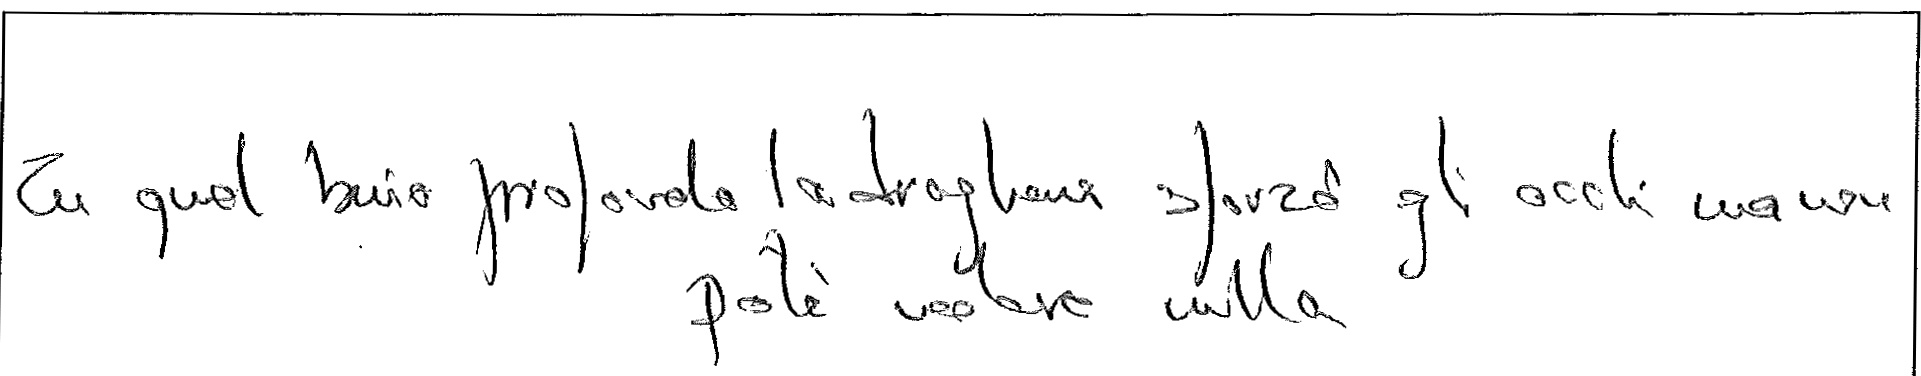 In quel buio profondo Ladraghena sforzò gli occhi ma non
potè vedere nulla